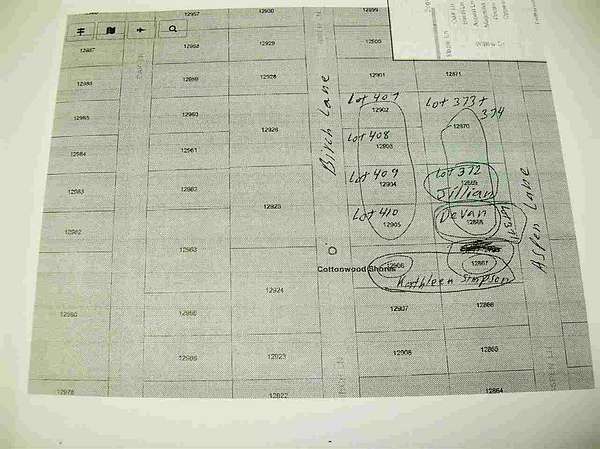 12957
12930
12899
12987
12958
12929
12900
12988
12959
12928
12901
12871
Lot 407
12902
Lot 373 +
374
12870
12985
12960
12926
Birch Lane
Lot 408
12903
12984
12961
Lot 409
12904
Lot 372
12869
Jillian
12983
12962
12925
Lot 410
12905
Devan
12868
Aspen Lane
12982
12963
Cottonwood Shores
12906
12867
Kathleen Simpson
12924
12907
12866
12980
12965
12966
12923
12908
12865
12978
12922
12864